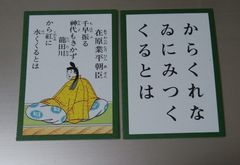 在原業平朝臣
千早振る
神代もきかず
龍田川
から紅に
水くくるとは
からくれな
ゐにみつく
くるとは